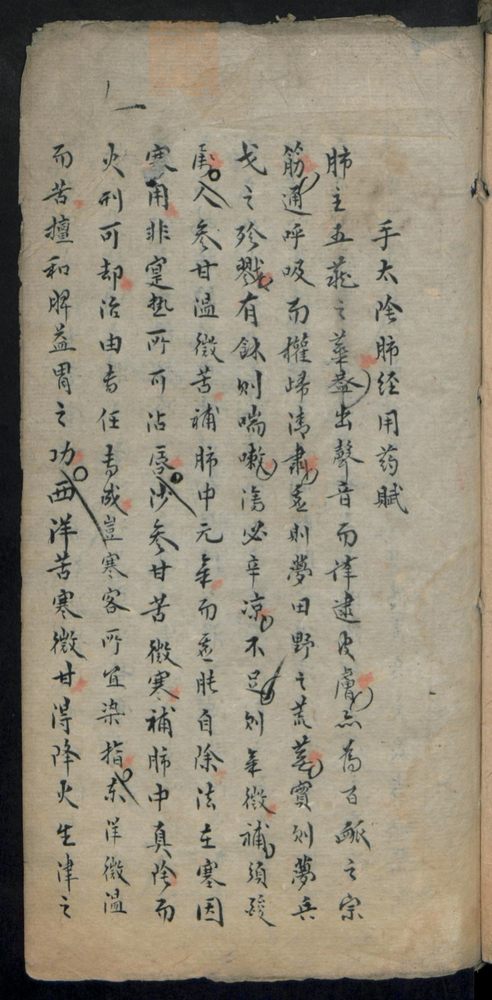 手太陰肺經用药賦
肺主五蔵之華蓋出聲音而津逮皮膚亦為百脈之宗
筋通呼吸而權歸清肅虛則夢田野之荒蕪實則夢兵
戈之殄戮有餘則喘嗽瀉必辛凉不足則氣微補須酸
人參甘溫微苦補肺中元氣而虛脹自除法在寒因
寒用非寔熱所可沾唇沙參甘苦微寒補肺中真陰而
火刑可却治由専任専成豈寒客所宜染指东洋微溫
而苦擅和脾益胃之功西洋苦寒微甘得降火生津之